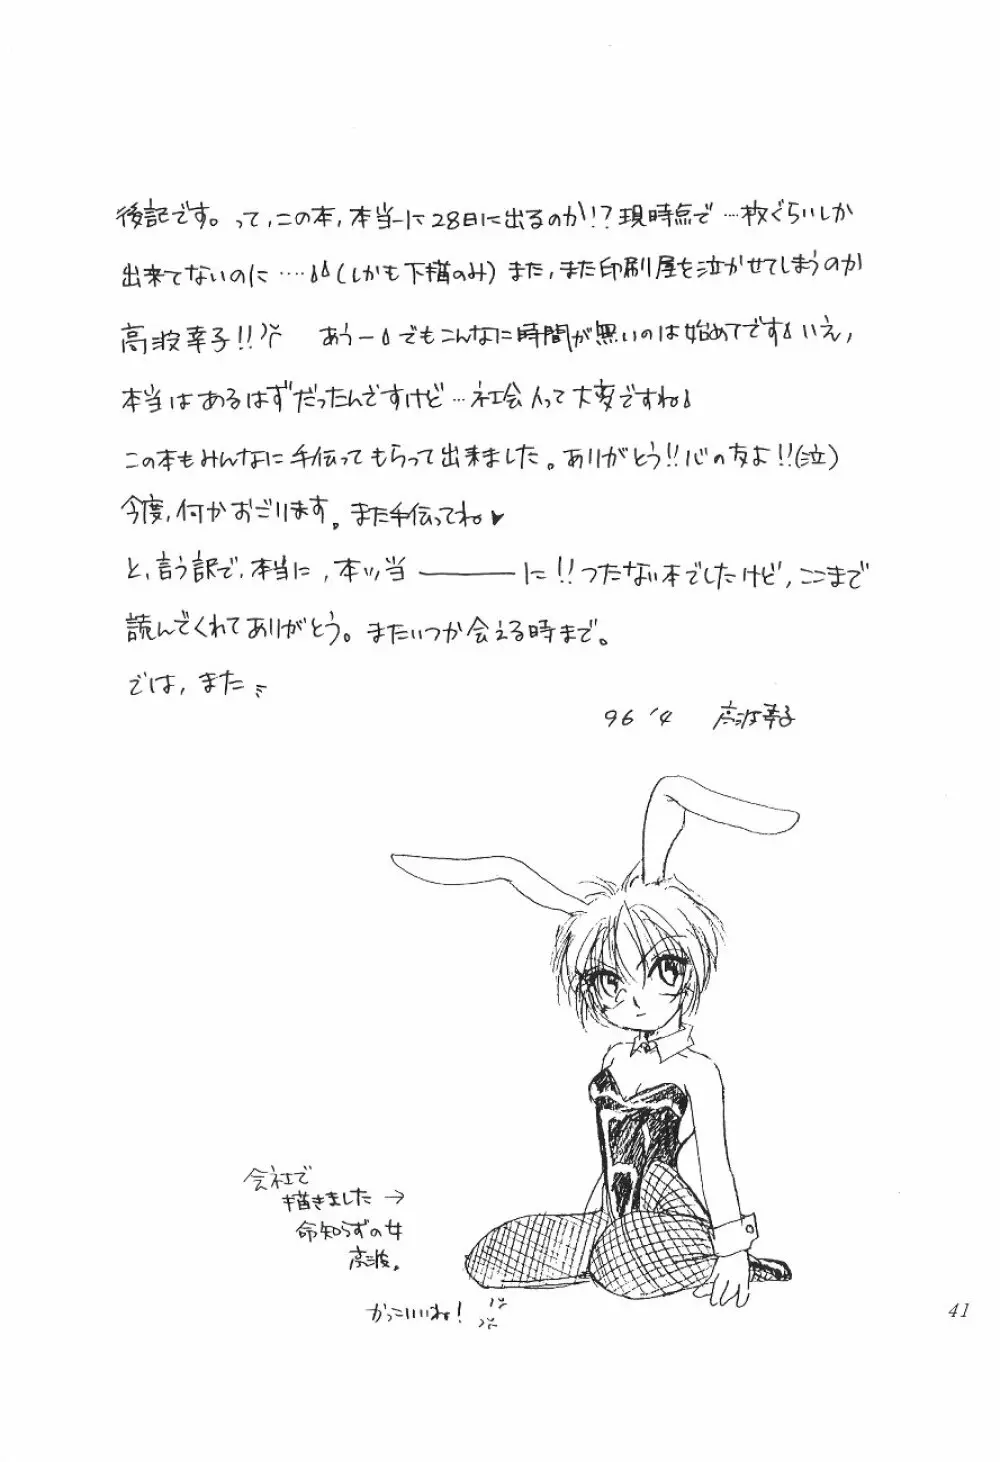 後記です。って,この本,本当ーに28日に出るのか!?現時点で…枚ぐらいしか
出来てないのに‥‥(しかも下描のみ)また,また印刷屋を泣かせてしまうのか
高波幸子!! あうーでもこんなに時間が無いのは始めてです いえ,
本当はあるはずだったんですけど…社会人って大変ですね
この本もみんなに手伝ってもらって出来ました。ありがとう!!心の友よ!!(泣)
今度,何かおごります。また手伝ってね♥
と,言う訳で,本当に,本ッ当————に!!つたない本でしたけど,ここまで
読んでくれてありがとう。またいつか会える時まで。
では,また
96 '4 高波幸子
会社で
描きました→
命知らずの女
高波。
かっこいいね!
41